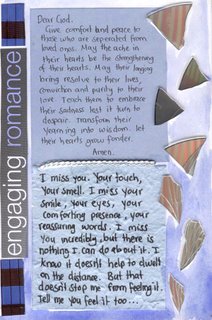 engaging romance
Dear God.
Give comfort and peace to
those who are seperated from
loved ones. May the ache in
their hearts be the strengthening
of their hearts. May their longing
bring resolve to their lives,
conviction and purity to their
love. Teach them to embrace
their sadness lest it turn to
despair. Transform their
yearning into wisdom. Let
their hearts grow fonder.
Amen.
I miss you. Your touch,
your smell. I miss your
smile, your eyes, your
comforting presence, your
reassuring words. I miss
you incredibly, but there is
nothing I can do about it. I
know it doesn't help to dwell
on the distance. But that
doesn't stop me from feeling it.
Tell me you feel it too...